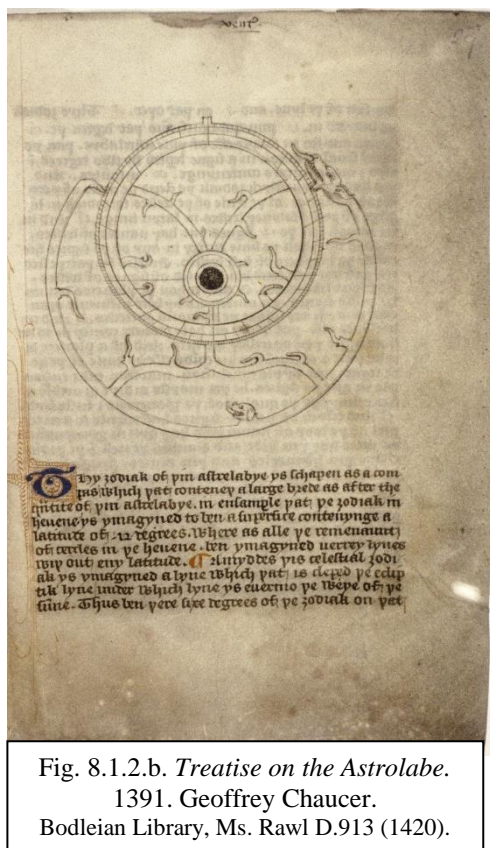 Thy zodiak of þin astrelabye ys schapen as a com
pas which þat conteneþ a large brede as after the
qntite of þin astrelabye. in ensample þat þe zodiak in
heuene ys ymagyned to ben a superfice contenynge a
latitude of .12. degrees. Where as alle þe remenaunt
of cercles in þe heuene. ben ymagyned uerrey lynes
wiþ out eny latitude. ¶ Amyddes þis celestial zodi
ak ys ymagyned a lyne which þat is cleped þe eclip
tik lyne under which lyne ys euermo þe weye of þe
sūne. Thus ben þere sixe degrees of þe zodiak on þat
Fig. 8.1.2.b. Treatise on the Astrolabe.
1391. Geoffrey Chaucer.
Bodleian Library, Ms. Rawl D.913 (1420).